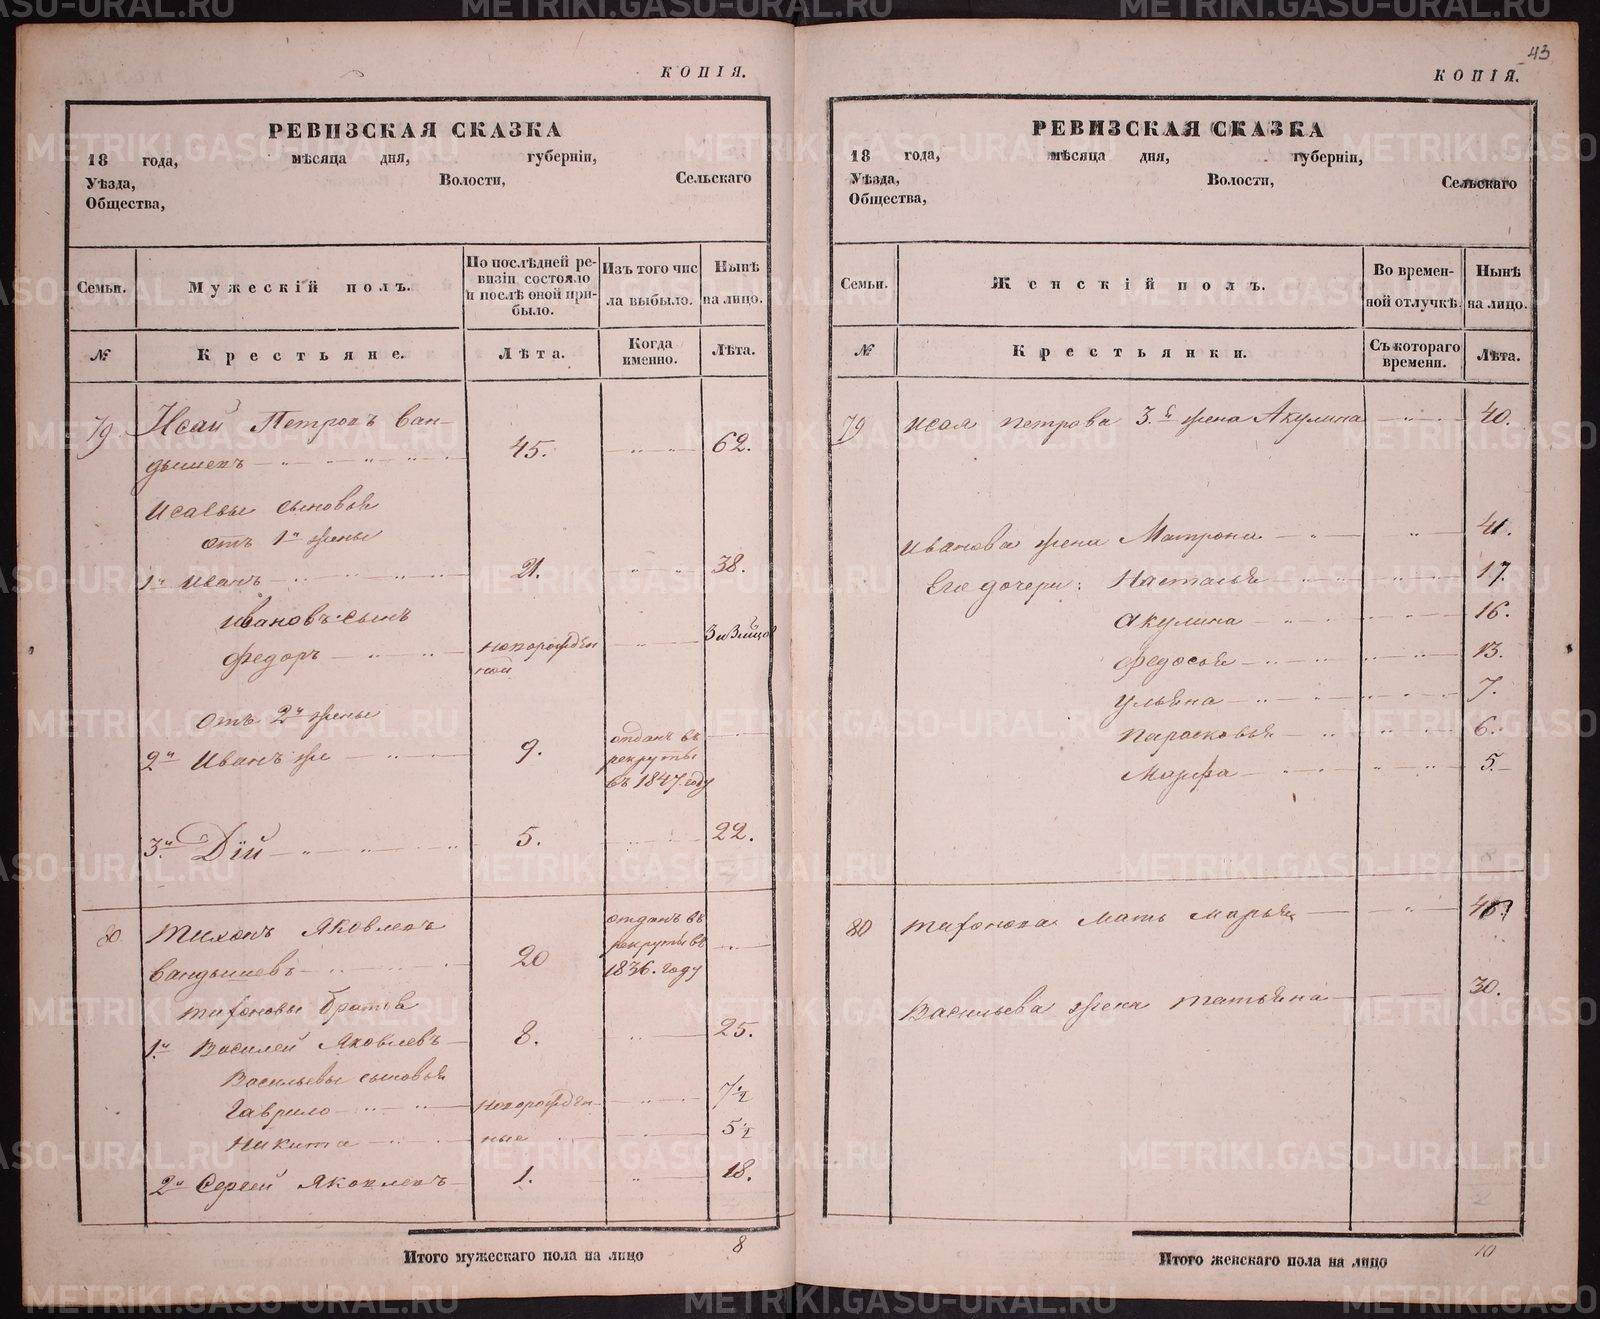 КОПІЯ.
РЕВИЗСКАЯ СКАЗКА
18 года, мѣсяца дня, губерніи,
Уѣзда, Волости, Сельскаго
Общества,
Семьи. Мужескій полъ. По послѣдней ревизіи состояло и послѣ оной прибыло. Изъ того числа выбыло. Нынѣ на лицо.
№ Крестьяне. Лѣта. Когда именно. Лѣта.
79 Исай Петровъ Ван-
дышевъ 45. 62.
Исаевы сыновья
отъ 1й жены
1й Иванъ 21. 38.
Ивановъ сынъ
Федоръ новорожден
ной
отъ 2й жены
2й Иванъ же 9. отданъ въ
рекруты
въ 1847 году
3й Дій 5. 22.
80 Тихонъ Яковлевъ отданъ въ
Вандышевъ 20 рекруты въ
1836. году
Тихоновы братья
1й Василей Яковлевъ 8. 25.
Васильевы сыновья
Гаврило новорожден 7½
Никита ные 5½
2й Сергей Яковлевъ 1. 18.
Итого мужескаго пола на лицо 8
43
КОПІЯ.
РЕВИЗСКАЯ СКАЗКА
18 года, мѣсяца дня, губерніи,
Уѣзда, Волости, Сельскаго
Общества,
Семьи. Женскій полъ. Во временной отлучкѣ. Нынѣ на лицо.
№ Крестьянки. Съ котораго времени. Лѣта.
79 Исая Петрова 3.й жена Акулина 40.
Иванова жена Матрона 41.
Его дочери: Насталья 17.
Акулина 16.
Федосья 13.
Ульяна 7.
Парасковья 6.
Марфа 5.
80 Тихонова мать Марья
Васильева жена Татьяна 30.
Итого женскаго пола на лицо 10
METRIKI.GASO-URAL.RU